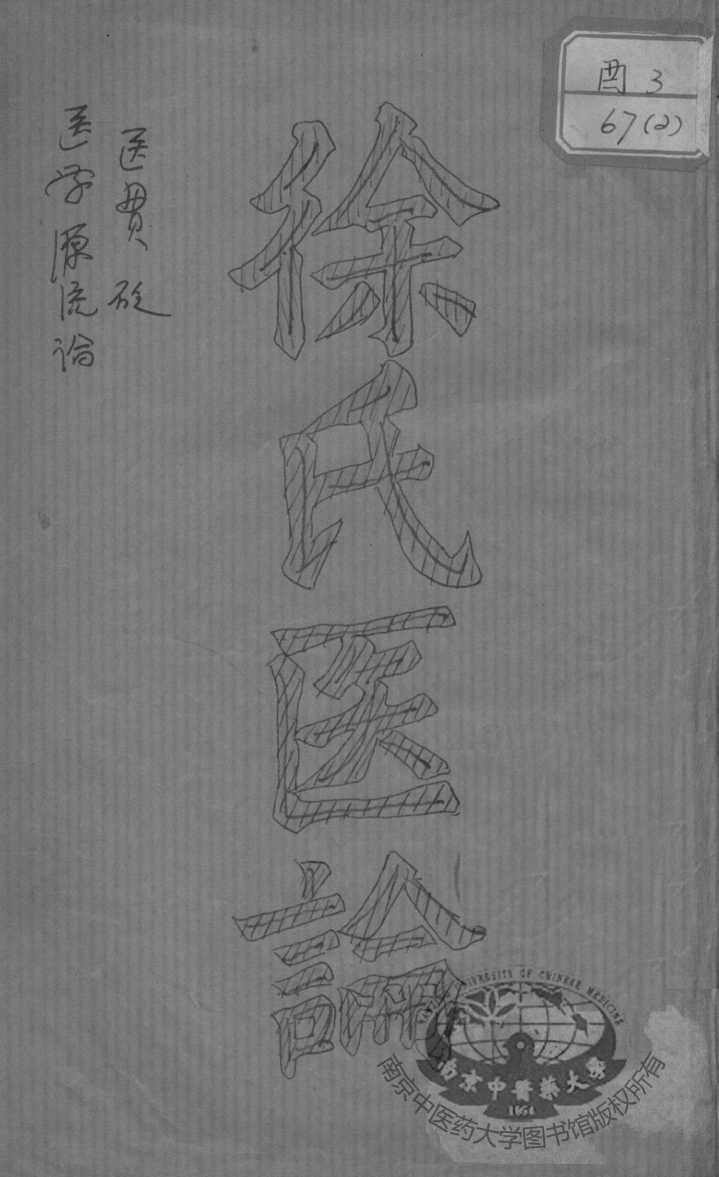 酉3
67(2)
徐氏医論
医貫砭
医学源流论
NANJING UNIVERSITY OF CHINESE MEDICINE
南京中醫藥大學
1954
南京中医药大学图书馆版权所有